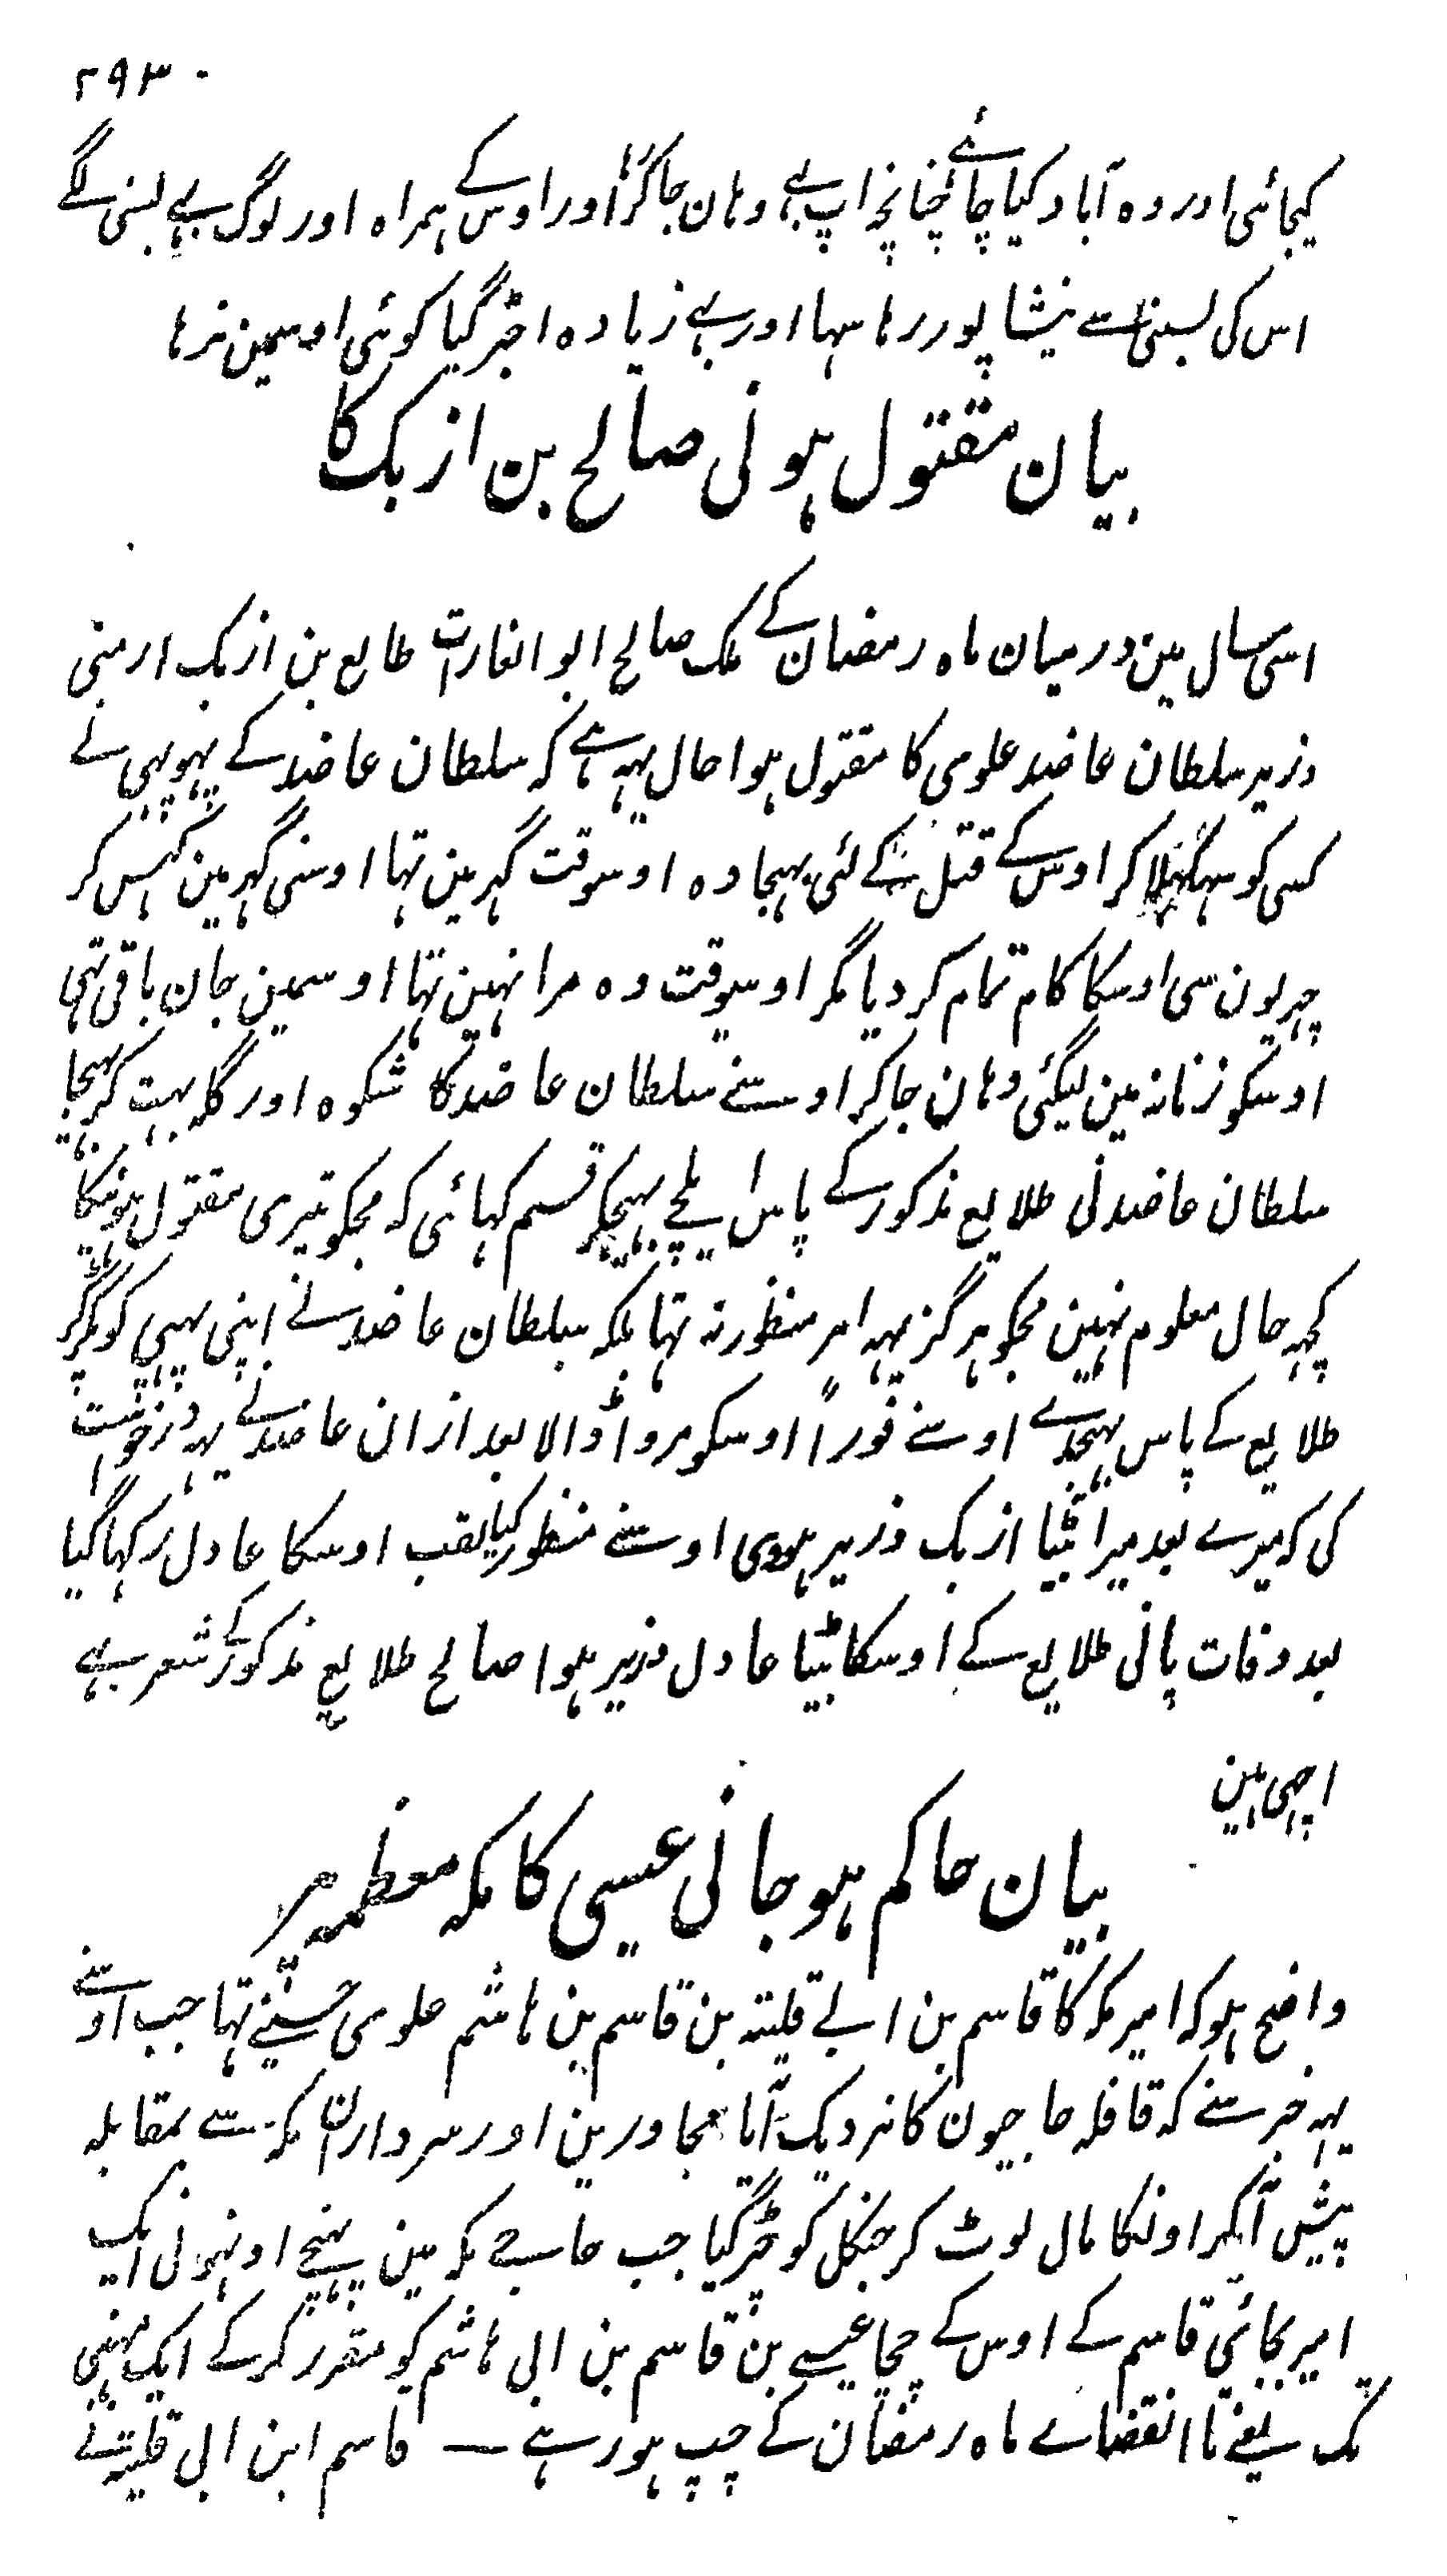 ۲۹۳
کیجائی اور وہ آباد کیا جائے چنانچہ اپ بہے وہان جاکر رہا اور اوس کے ہمراہ اور لوگ بہے بسنی لگے
اس کی بسنی سے نیشاپور رہا سہا اور بہے زیادہ اجڑ گیا کوئی اوسمین نرہا
بیان مقتول ہونی صالح بن ازبک کا
اسی سال مین درمیان ماہ رمضان کے ملک صالح ابو الغارات طالع بن ازبک ارمنی
وزیر سلطان عاضد علوی کا مقتول ہوا حال یہہ ہے کہ سلطان عاضد کے پہوپہی نے
کسی کو سہکہلا کر اوس کے قتل کے لئی بہیجا وہ اوسوقت گہر مین تہا اوسنی گہر مین گہس کر
چہریون سی اوسکا کام تمام کر دیا مگر اوسوقت وہ مرا نہین تہا اوسمین جان باقی تہی
اوسکو زنانہ مین لیگئی وہان جاکر اوسنے سلطان عاضد کا شکوہ اور گلہ بہت کر بہیجا
سلطان عاضد نی طلایع مذکور کے پاس ایلچے بہیجکر قسم کہائی کہ مجکو تیری مقتول ہونیکا
کچہہ حال معلوم نہین مجکو ہرگز یہہ امر منظور نہ تہا بلکہ سلطان عاضد نے اپنی پہپی کو پکڑ کر
طلایع کے پاس بہیجدے اوسنے فوراً اوسکو مروا ڈالا بعد ازان عاضد نے یہہ درخواست
کی کہ میرے بعد میرا بیٹا ازبک وزیر ہووی اوسنے منظور کیا لقب اوسکا عادل رکہا گیا
بعد وفات پانی طلایع کے اوسکا بیٹا عادل وزیر ہوا صالح طلایع مذکور کے شعر بہے
اچہی ہین
بیان حاکم ہو جانی عیسی کا مکہ معظمہ پر
واضح ہو کہ امیر مکہ کا قاسم بن ابے قلیتہ بن قاسم بن ہاشم علوی حسینے تہا جب اوسنے
یہہ خبر سنے کہ قافلہ حاجیون کا نزدیک آیا مجاورین اور سرداران مکہ سے بمقابلہ
پیش آکر اونکا مال لوٹ کر جنگل کو چڑگیا جب حاجے مکہ مین پہنچے اونہونی ایک
امیر بجائی قاسم کے اوس کے چچا عیسے بن قاسم بن ابی ہاشم کو مقرر کر کے ایک مہینی
تک یعنے تا انقضاے ماہ رمضان کے چپ ہو رہے — قاسم ابن ابی قلیتہ نے